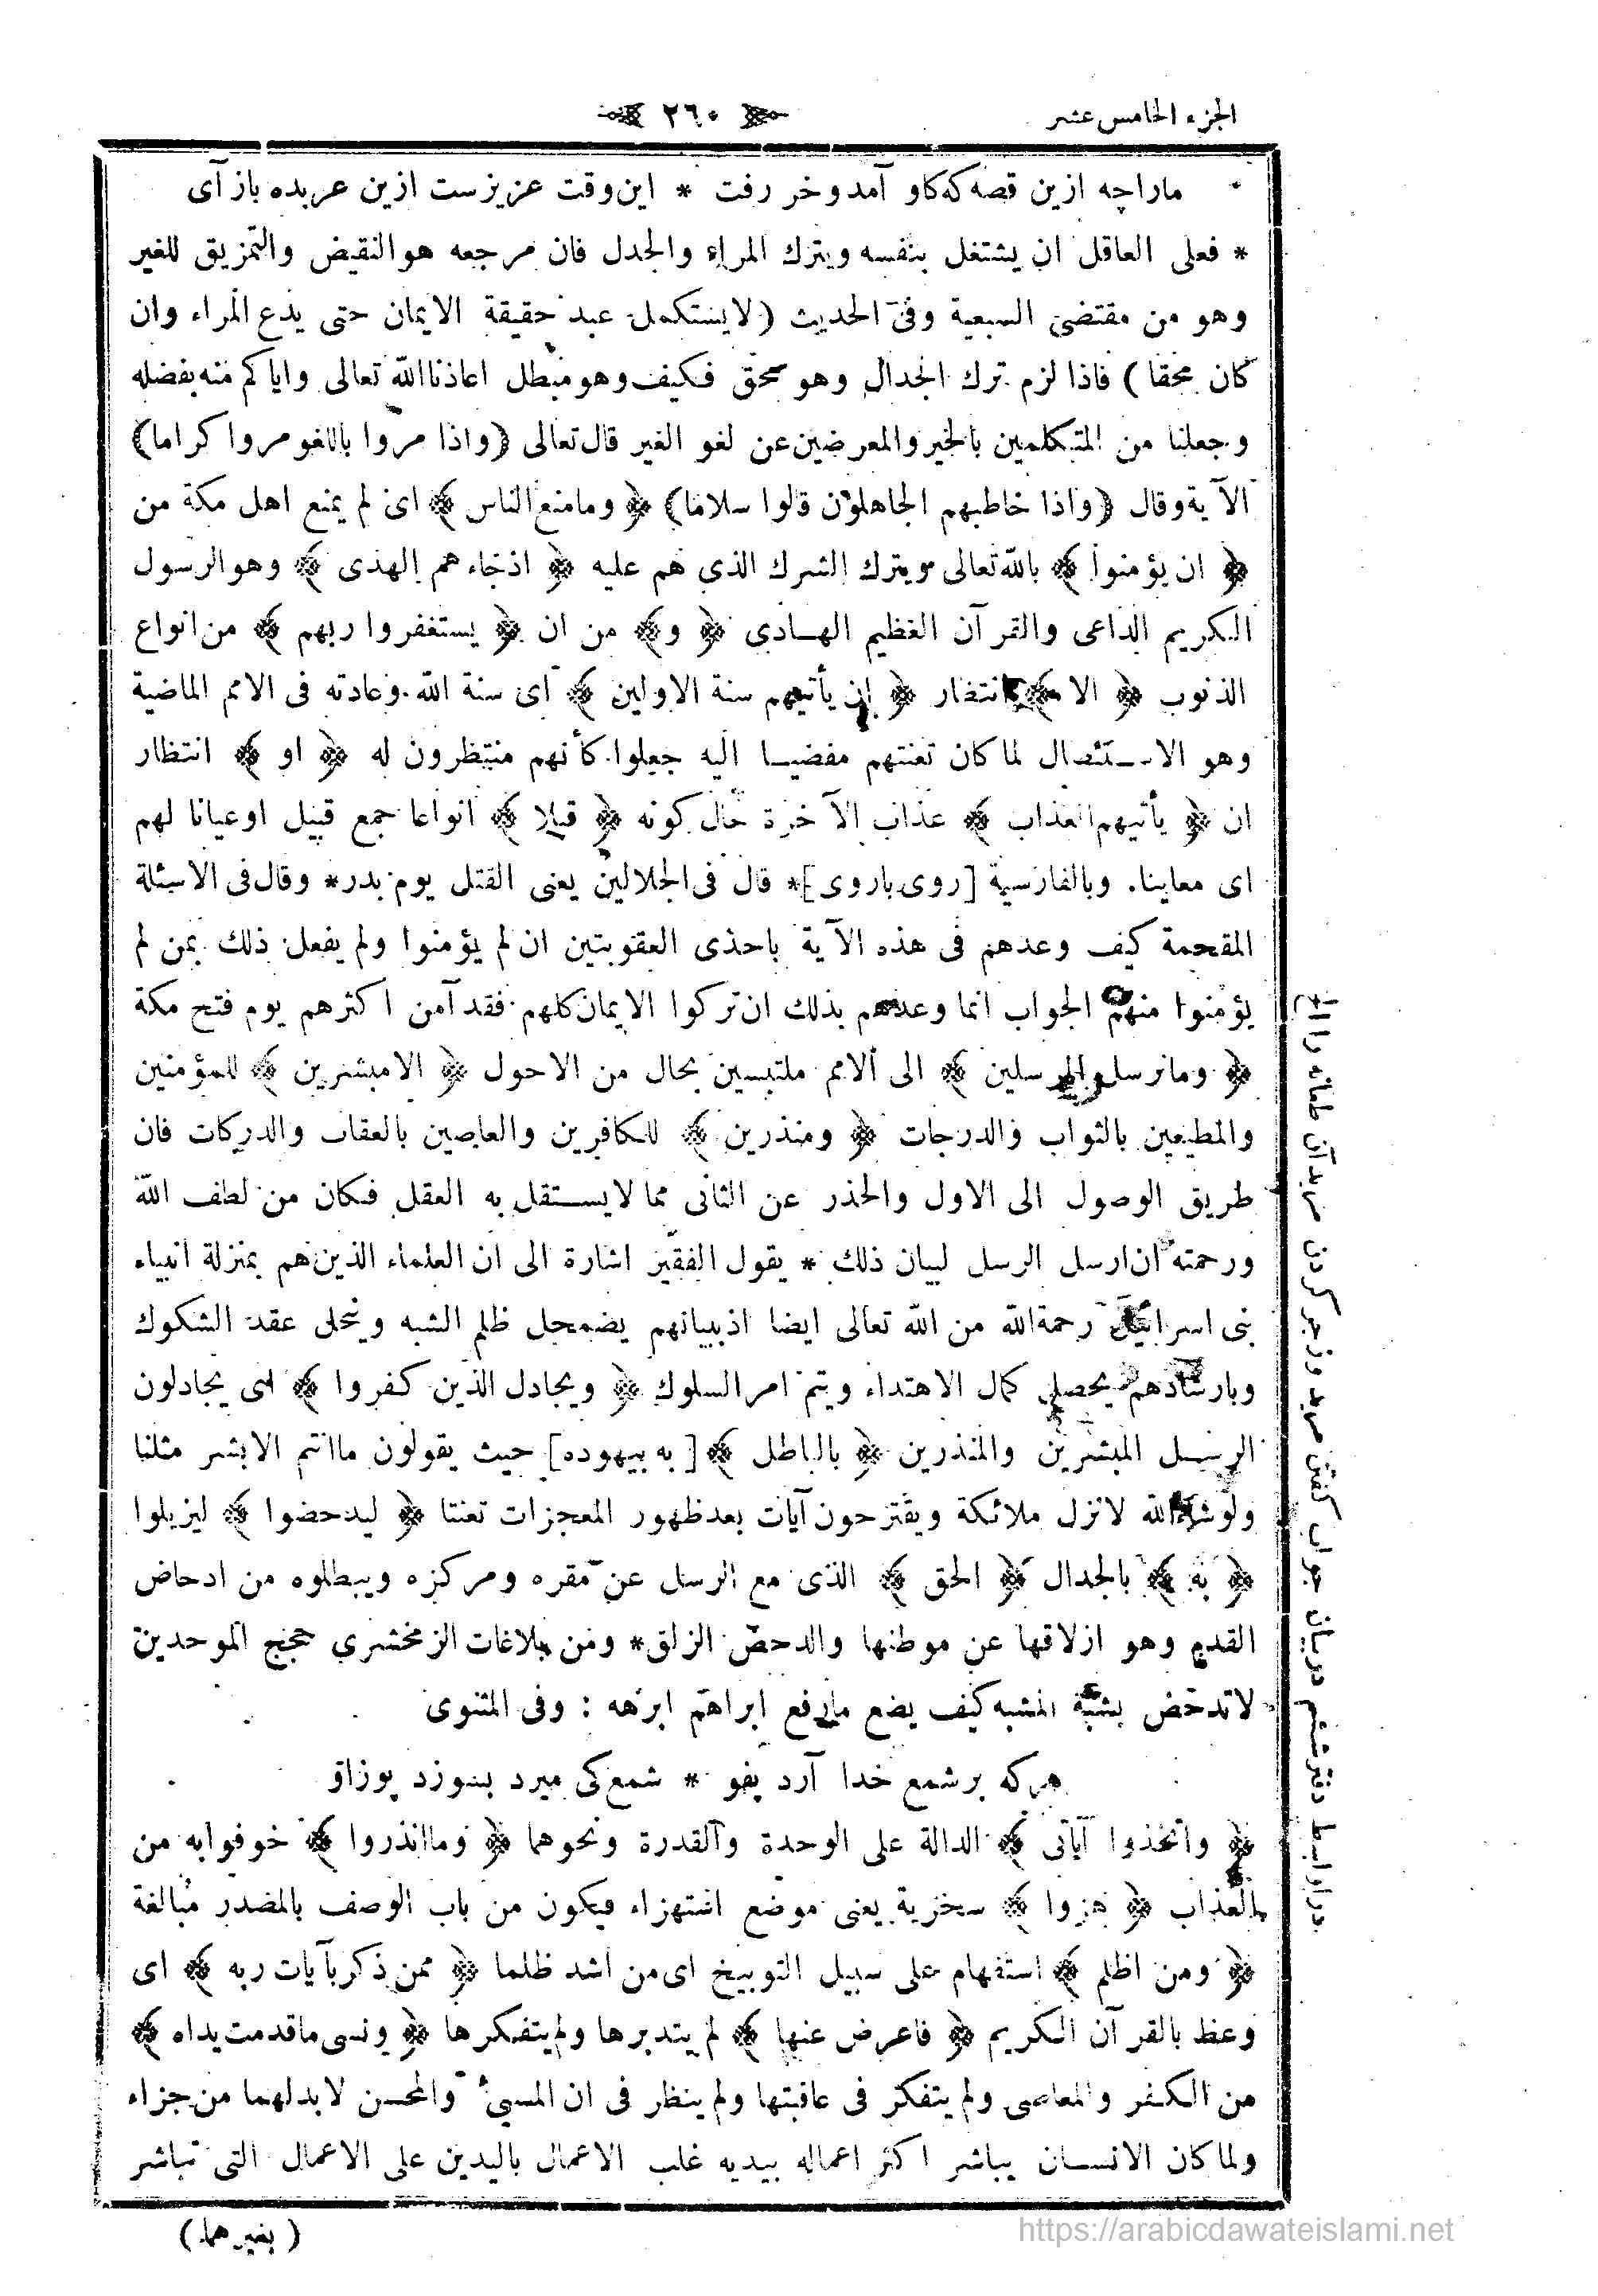 الجزء الخامس عشر
٢٦٠
ماراچه ازين قصه كه كاو آمد وخر رفت * اين وقت عزيزست ازين عربده باز آى
* فعلى العاقل ان يشتغل بنفسه ويترك المراء والجدل فان مرجعه هو النقيض والتمزيق للغير
وهو من مقتضى السبعية وفى الحديث (لا يستكمل عبد حقيقة الايمان حتى يدع المراء وان
كان محقا) فاذا لزم ترك الجدال وهو محق فكيف وهو مبطل اعاذنا الله تعالى واياكم منه بفضله
وجعلنا من المتكلمين بالخير والمعرضين عن لغو الغير قال تعالى (واذا مروا باللغو مروا كراما)
الآية وقال (واذا خاطبهم الجاهلون قالوا سلاما) ﴿ وما منع الناس ﴾ اى لم يمنع اهل مكة من
﴿ ان يؤمنوا ﴾ بالله تعالى ويترك الشرك الذى هم عليه ﴿ اذ جاءهم الهدى ﴾ وهو الرسول
الكريم الداعى والقرآن العظيم الهادى ﴿ و ﴾ من ان ﴿ يستغفروا ربهم ﴾ من انواع
الذنوب ﴿ الا ﴾ انتضار ﴿ ان يأتيهم سنة الاولين ﴾ اى سنة الله وعادته فى الامم الماضية
وهو الاستئصال لما كان تعنتهم مفضيا اليه جعلوا كأنهم منتظرون له ﴿ او ﴾ انتظار
ان ﴿ يأتيهم العذاب ﴾ عذاب الآخرة حال كونه ﴿ قبلا ﴾ انواعا جمع قبيل او عيانا لهم
اى معاينا. وبالفارسية [روى باروى]* قال فى الجلالين يعنى القتل يوم بدر* وقال فى الاسئلة
المقحمة كيف وعدهم فى هذه الآية باحدى العقوبتين ان لم يؤمنوا ولم يفعل ذلك بمن لم
يؤمنوا منهم الجواب انما وعدهم بذلك ان تركوا الايمان كلهم فقد آمن اكثرهم يوم فتح مكة
﴿ وما نرسل المرسلين ﴾ الى الامم ملتبسين بحال من الاحول ﴿ الا مبشرين ﴾ للمؤمنين
والمطيعين بالثواب والدرجات ﴿ ومنذرين ﴾ للكافرين والعاصين بالعقاب والدركات فان
طريق الوصول الى الاول والحذر عن الثانى مما لا يستقل به العقل فكان من لطف الله
ورحمته ان ارسل الرسل لبيان ذلك * يقول الفقير اشارة الى ان العلماء الذين هم بمنزلة انبياء
بنى اسرائيل رحمة الله من الله تعالى ايضا اذ ببيانهم يضمحل ظلم الشبه وينحلى عقد الشكوك
وبارشادهم يحصل كمال الاهتداء ويتم امر السلوك ﴿ ويجادل الذين كفروا ﴾ اى يجادلون
الرسل المبشرين والمنذرين ﴿ بالباطل ﴾ [به بيهوده] حيث يقولون ما انتم الا بشر مثلنا
ولو شاء الله لانزل ملائكة ويقترحون آيات بعد ظهور المعجزات تعنتا ﴿ ليدحضوا ﴾ ليزيلوا
﴿ به ﴾ بالجدال ﴿ الحق ﴾ الذى مع الرسل عن مقره ومركزه ويبطلوه من ادحاض
القدم وهو ازلاقها عن موطنها والدحض الزلق* ومن بلاغات الزمخشري حجج الموحدين
لا تدحض بشبه المشبه كيف يضع ما رفع ابراهيم ابرهه : وفى المثنوى
هركه بر شمع خدا آرد پفو * شمع كى ميرد بسوزد پوز او
﴿ واتخذوا آياتى ﴾ الدالة على الوحدة والقدرة ونحوهما ﴿ وما انذروا ﴾ خوفوا به من
العذاب ﴿ هزوا ﴾ سخرية يعنى موضع استهزاء فيكون من باب الوصف بالمصدر مبالغة
﴿ ومن اظلم ﴾ استفهام على سبيل التوبيخ اى من اشد ظلما ﴿ ممن ذكر بآيات ربه ﴾ اى
وعظ بالقرآن الكريم ﴿ فاعرض عنها ﴾ لم يتدبرها ولم يتفكرها ﴿ ونسى ما قدمت يداه ﴾
من الكفر والمعاصى ولم يتفكر فى عاقبتها ولم ينظر فى ان المسيئ والمحسن لا بد لهما من جزاء
ولما كان الانسان يباشر اكثر اعماله بيديه غلب الاعمال باليدين على الاعمال التى تباشر
(بغيرهما)
در اواسط دفتر ششم در بيان جواب گفتن مريد وزجر كردن مريد آن طعانه را الخ
https://arabicdawateislami.net